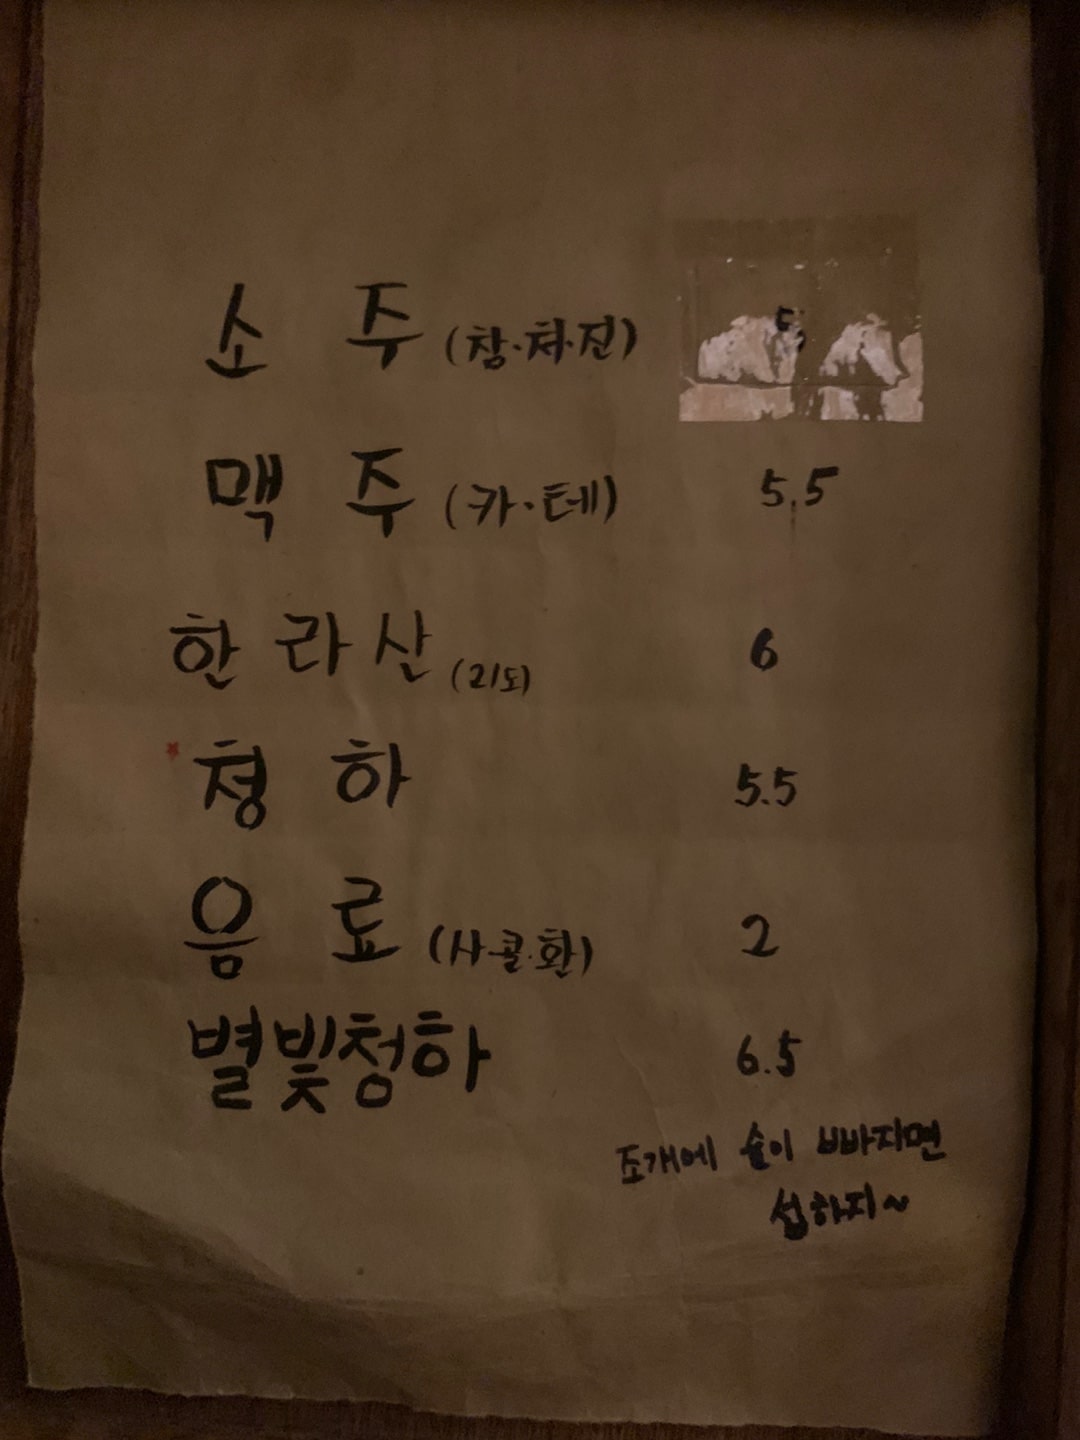 소주 (참·처·진) 5
맥주 (카·테) 5.5
한라산 (21도) 6
청하 5.5
음료 (사·콜·환) 2
별빛청하 6.5
조개에 술이 빠지면
섭하지~